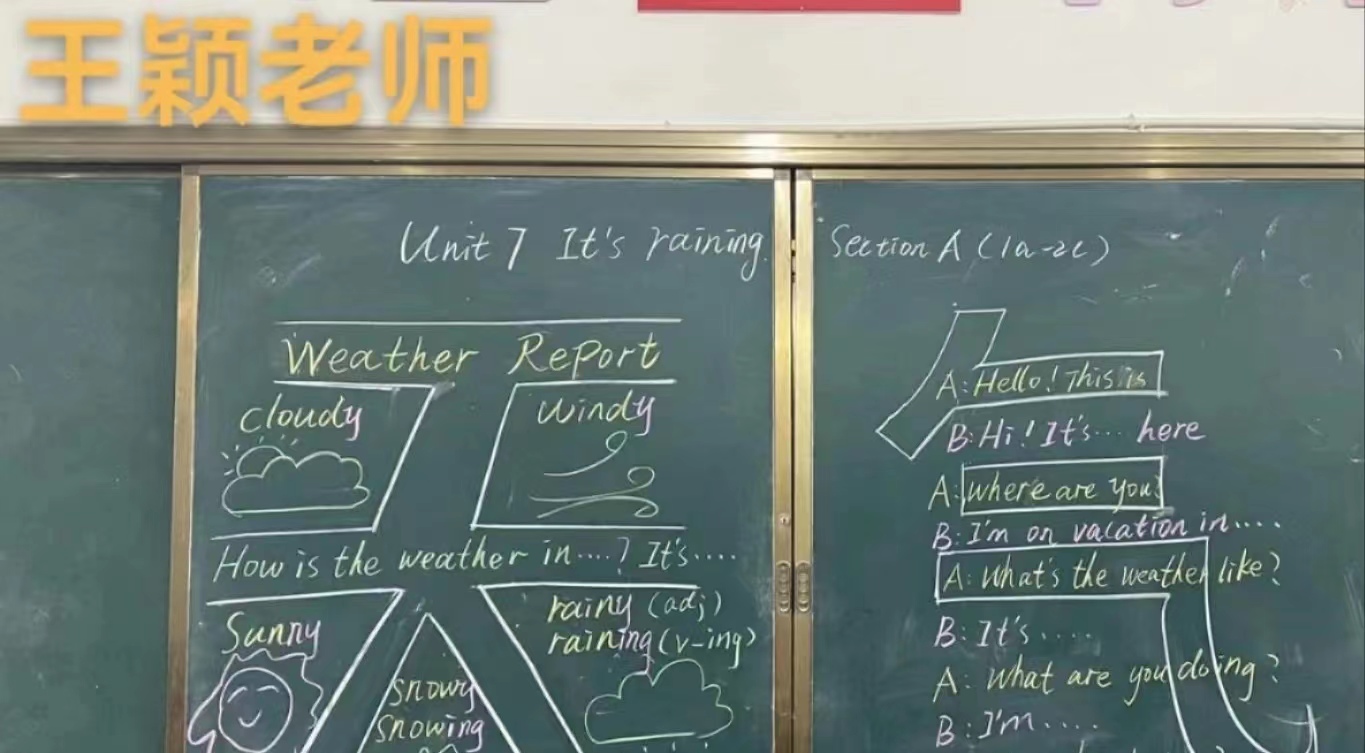 王颖老师
Unit 7 It's raining. Section A (1a-2c)
Weather Report
cloudy
windy
How is the weather in....? It's....
Sunny
rainy (adj)
raining (v-ing)
snowy
snowing
A: Hello! This is
B: Hi! It's... here
A: where are you?
B: I'm on vacation in....
A: What's the weather like?
B: It's....
A: What are you doing?
B: I'm....